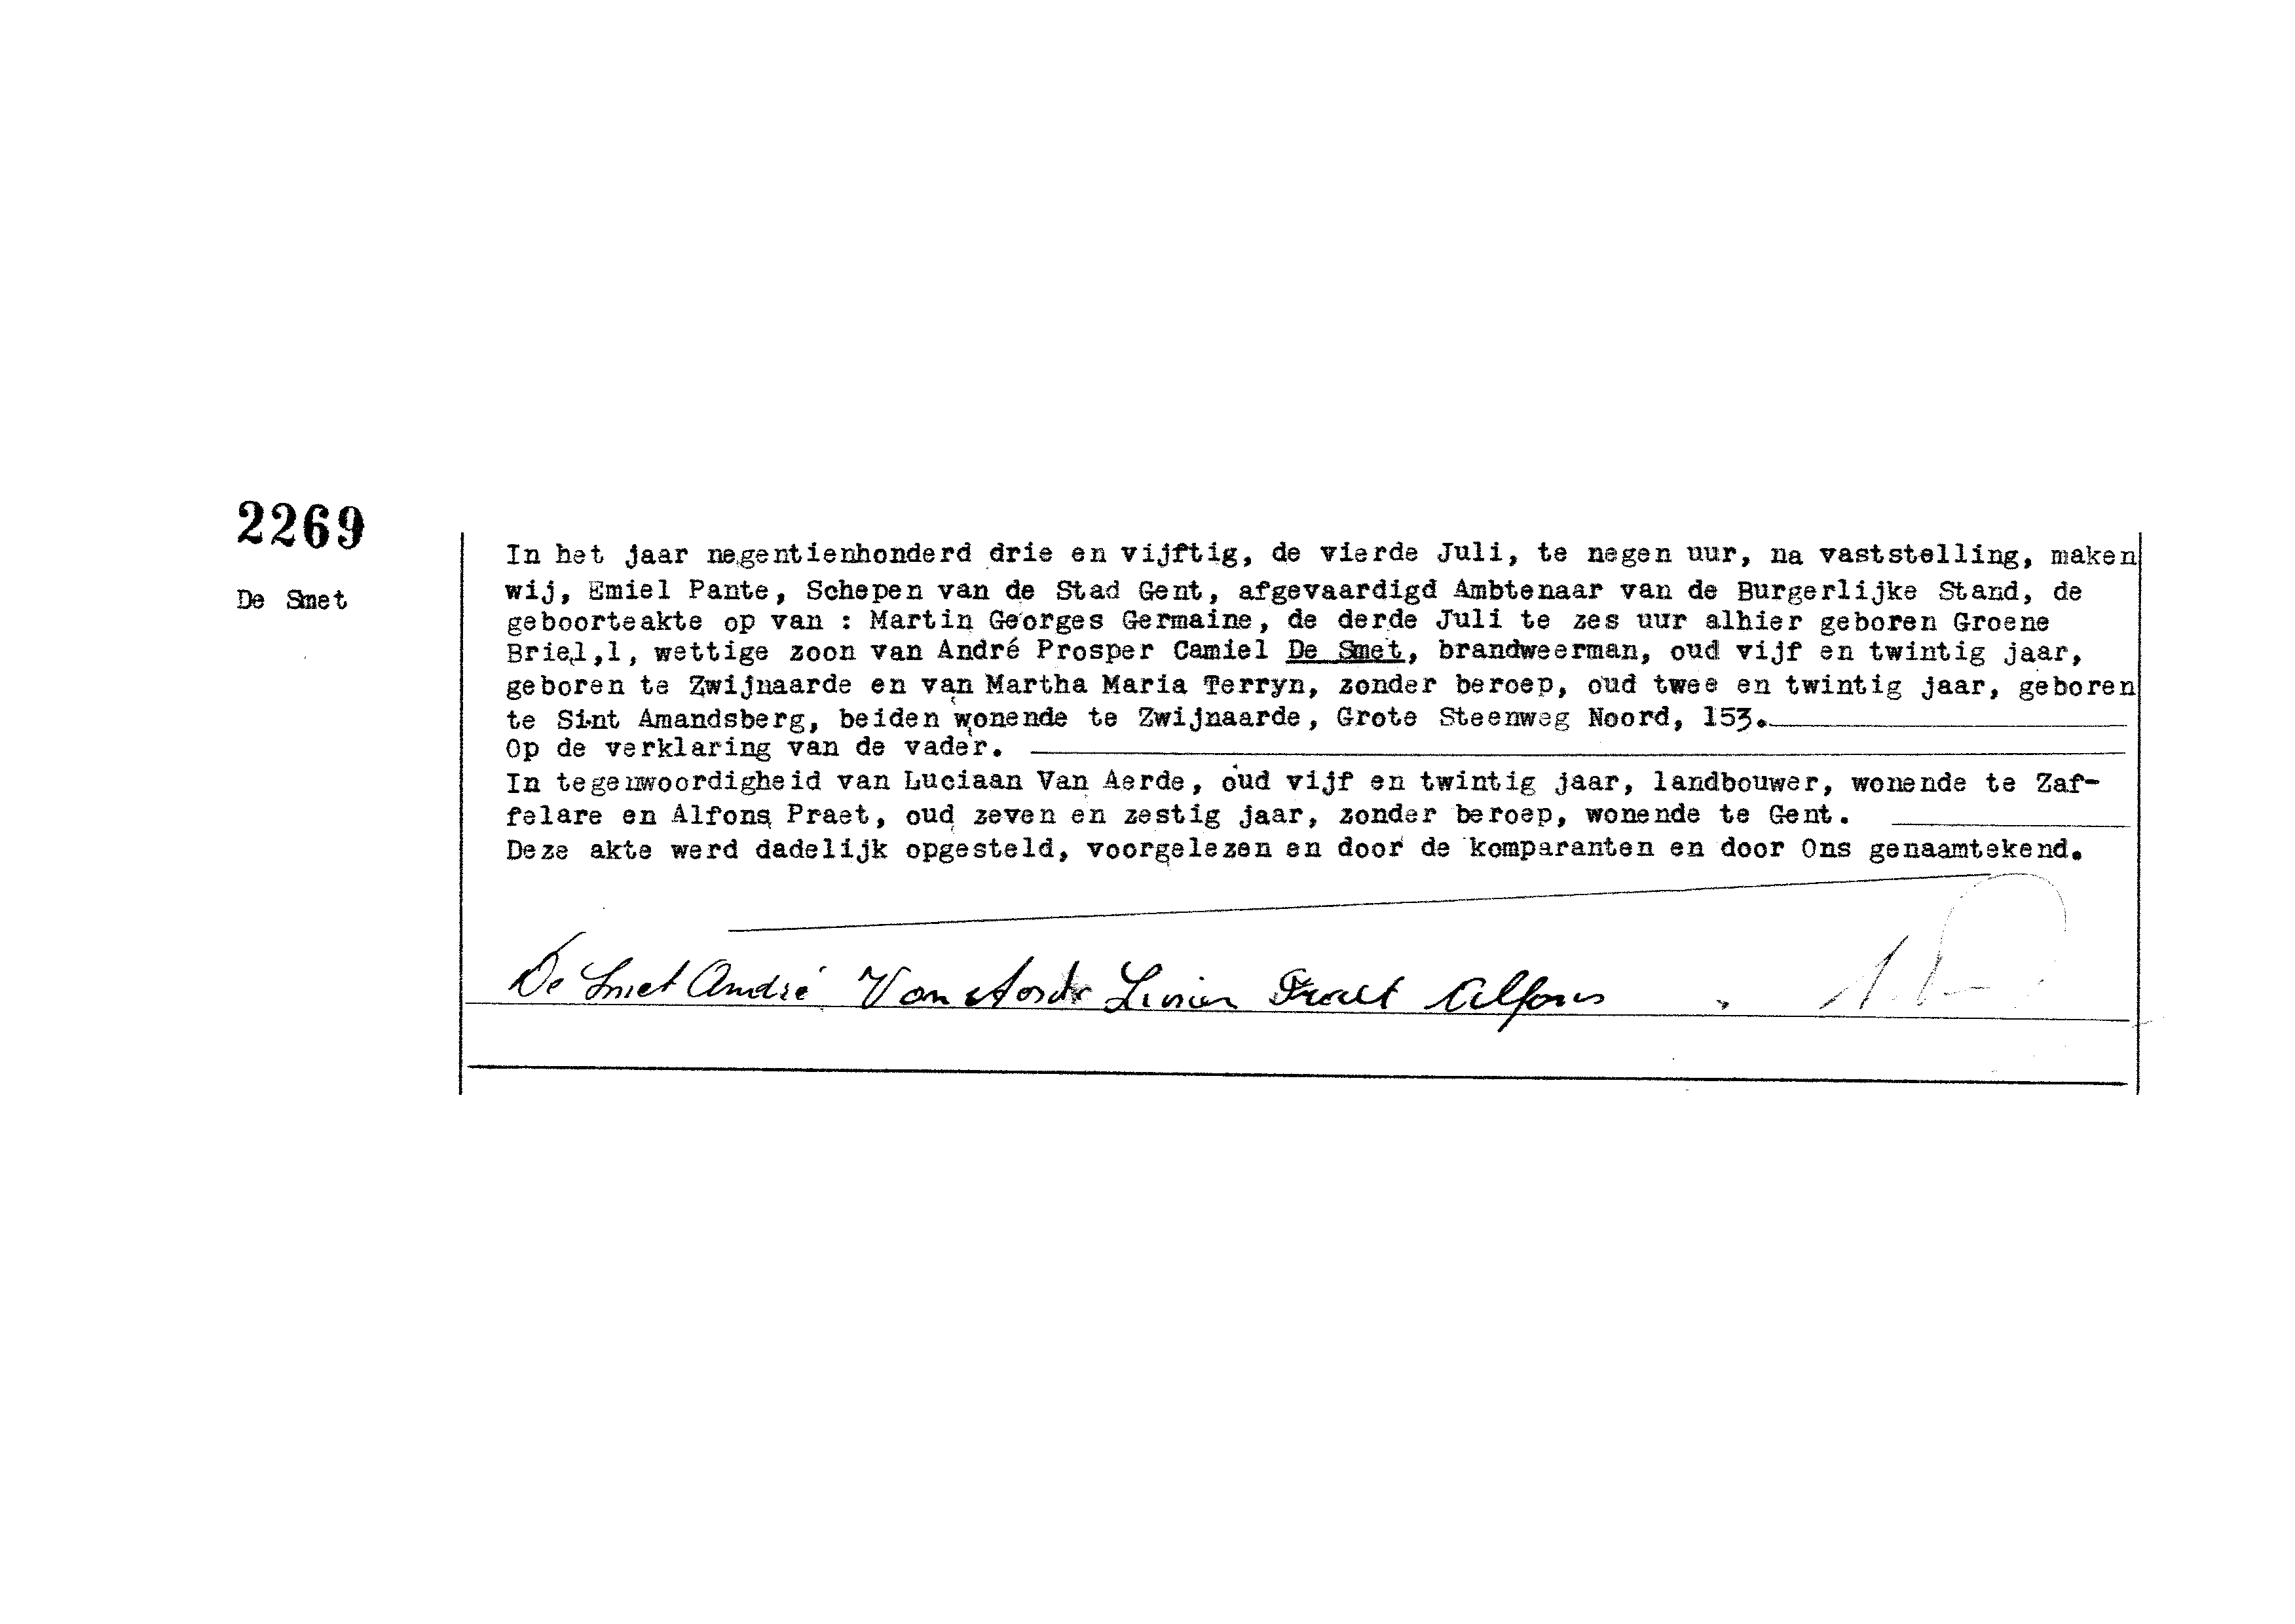 2269
De Smet
In het jaar negentienhonderd drie en vijftig, de vierde Juli, te negen uur, na vaststelling, maken
wij, Emiel Pante, Schepen van de Stad Gent, afgevaardigd Ambtenaar van de Burgerlijke Stand, de
geboorteakte op van : Martin Georges Germaine, de derde Juli te zes uur alhier geboren Groene
Briel,1, wettige zoon van André Prosper Camiel De Smet, brandweerman, oud vijf en twintig jaar,
geboren te Zwijnaarde en van Martha Maria Terryn, zonder beroep, oud twee en twintig jaar, geboren
te Sint Amandsberg, beiden wonende te Zwijnaarde, Grote Steenweg Noord, 153.
Op de verklaring van de vader.
In tegenwoordigheid van Luciaan Van Aerde, oud vijf en twintig jaar, landbouwer, wonende te Zaf-
felare en Alfons Praet, oud zeven en zestig jaar, zonder beroep, wonende te Gent.
Deze akte werd dadelijk opgesteld, voorgelezen en door de komparanten en door Ons genaamtekend.
De Smet André Van Aerde Praet Alfons